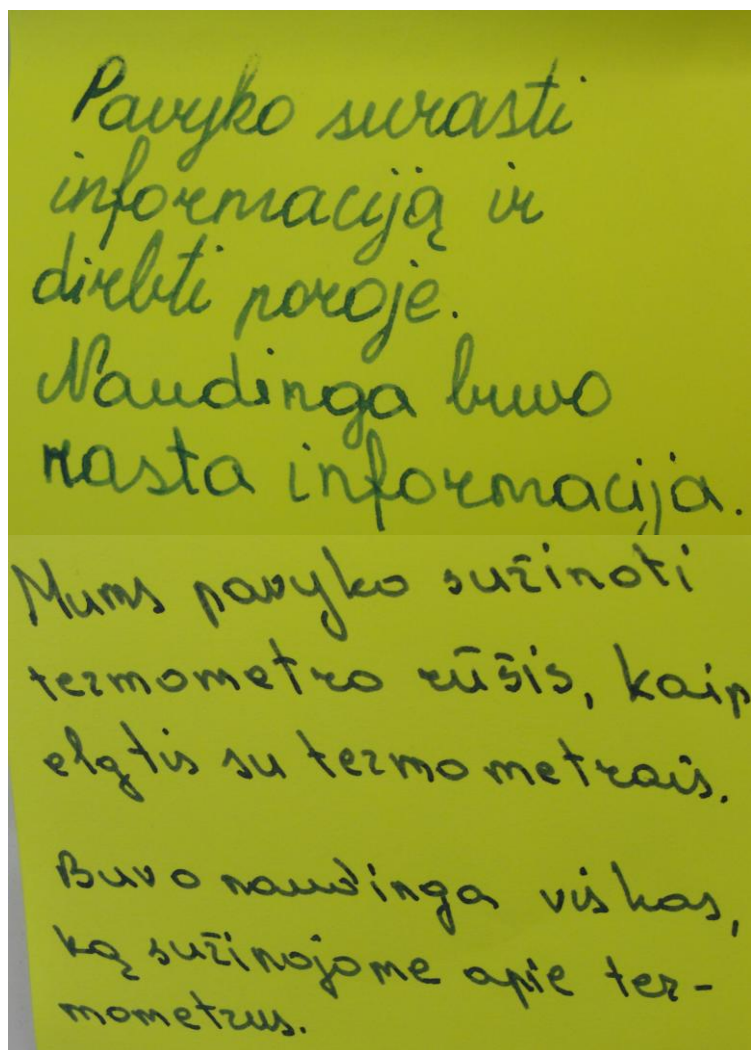 Pavyko surasti
informaciją ir
dirbti poroje.
Naudinga buvo
rasta informacija.
Mums pavyko sužinoti
termometro rūšis, kaip
elgtis su termometrais.
Buvo naudinga viskas,
ką sužinojome apie ter-
mometrus.